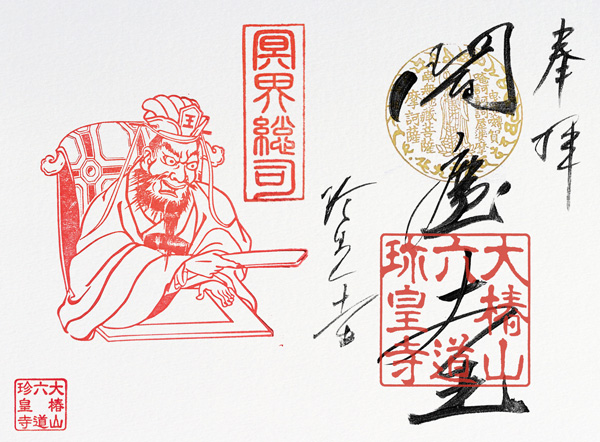 奉拝
閻魔大王
大椿山
六道
珍皇寺
珍皇寺
冥界総司
王
大椿山
六道
珍皇寺